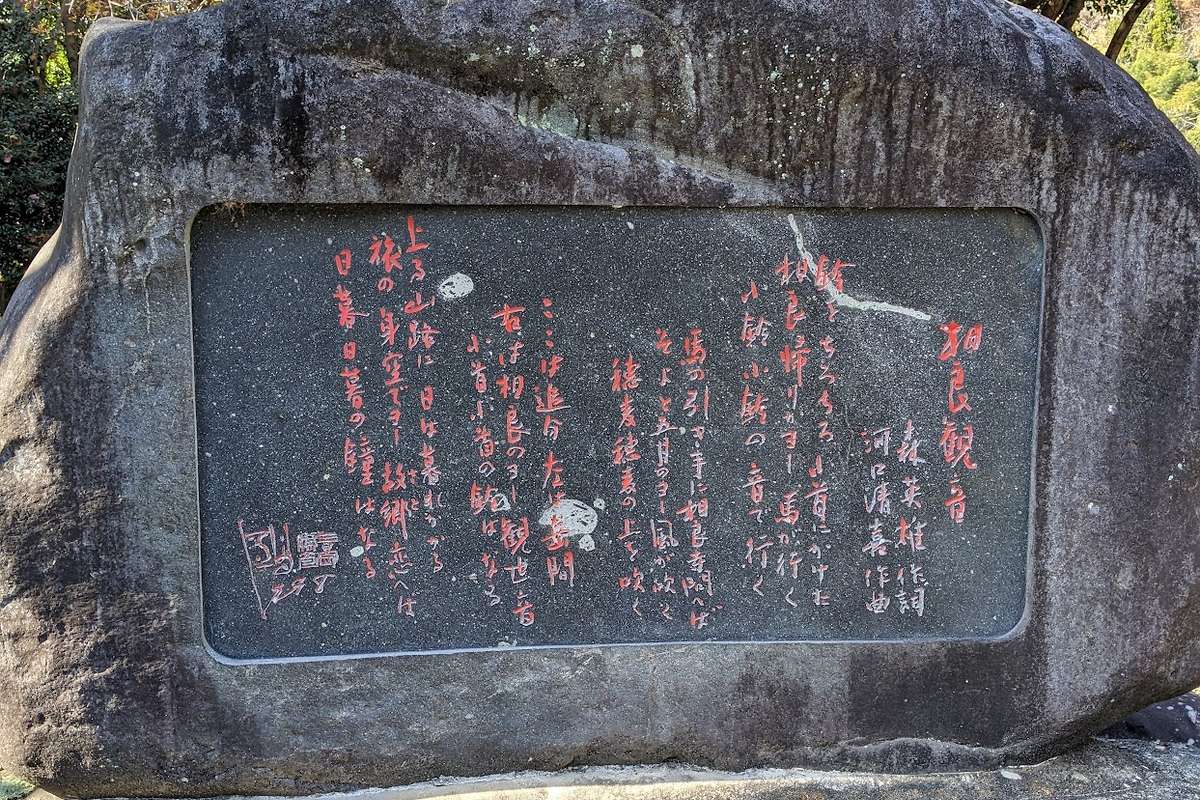 相良観音
森英雄作詞
河口清喜作曲
鈴をちろちろ小首にかけた
相良帰りかヨー馬が行く
小鈴小鈴の音で行く
馬の引き手に相良寺問へば
そよと五月のヨー風が吹く
穂麦穂麦の上を吹く
ここは追分左は岳間
右は相良のヨー観世音
小首小首の鈴はなる
上る山路に日は暮れかかる
旅の身空でヨー故郷恋へば
さと
日暮日暮の鐘はなる